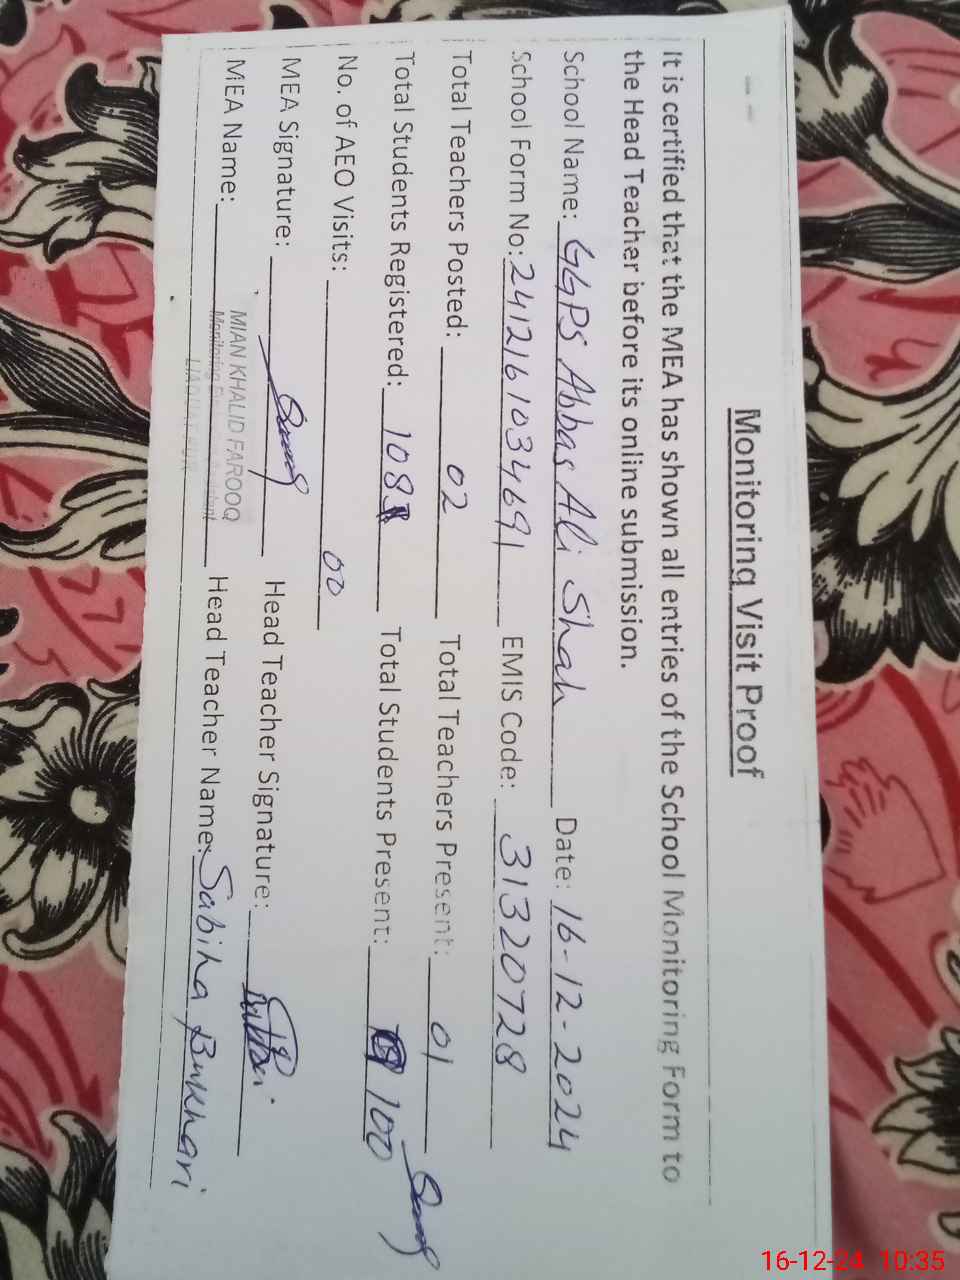 Monitoring Visit Proof
It is certified that the MEA has shown all entries of the School Monitoring Form to
the Head Teacher before its online submission.
School Name: GGPS Abbas Ali Shah Date: 16-12-2024
School Form No: 2412161034691 EMIS Code: 31320728
Total Teachers Posted: 02 Total Teachers Present: 01
Total Students Registered: 108 Total Students Present: 100
No. of AEO Visits: 00
MEA Signature: Head Teacher Signature:
MIAN KHALID FAROOQ
MEA Name: Head Teacher Name: Sabiha Bukhari
Monitoring
16-12-24 10:35